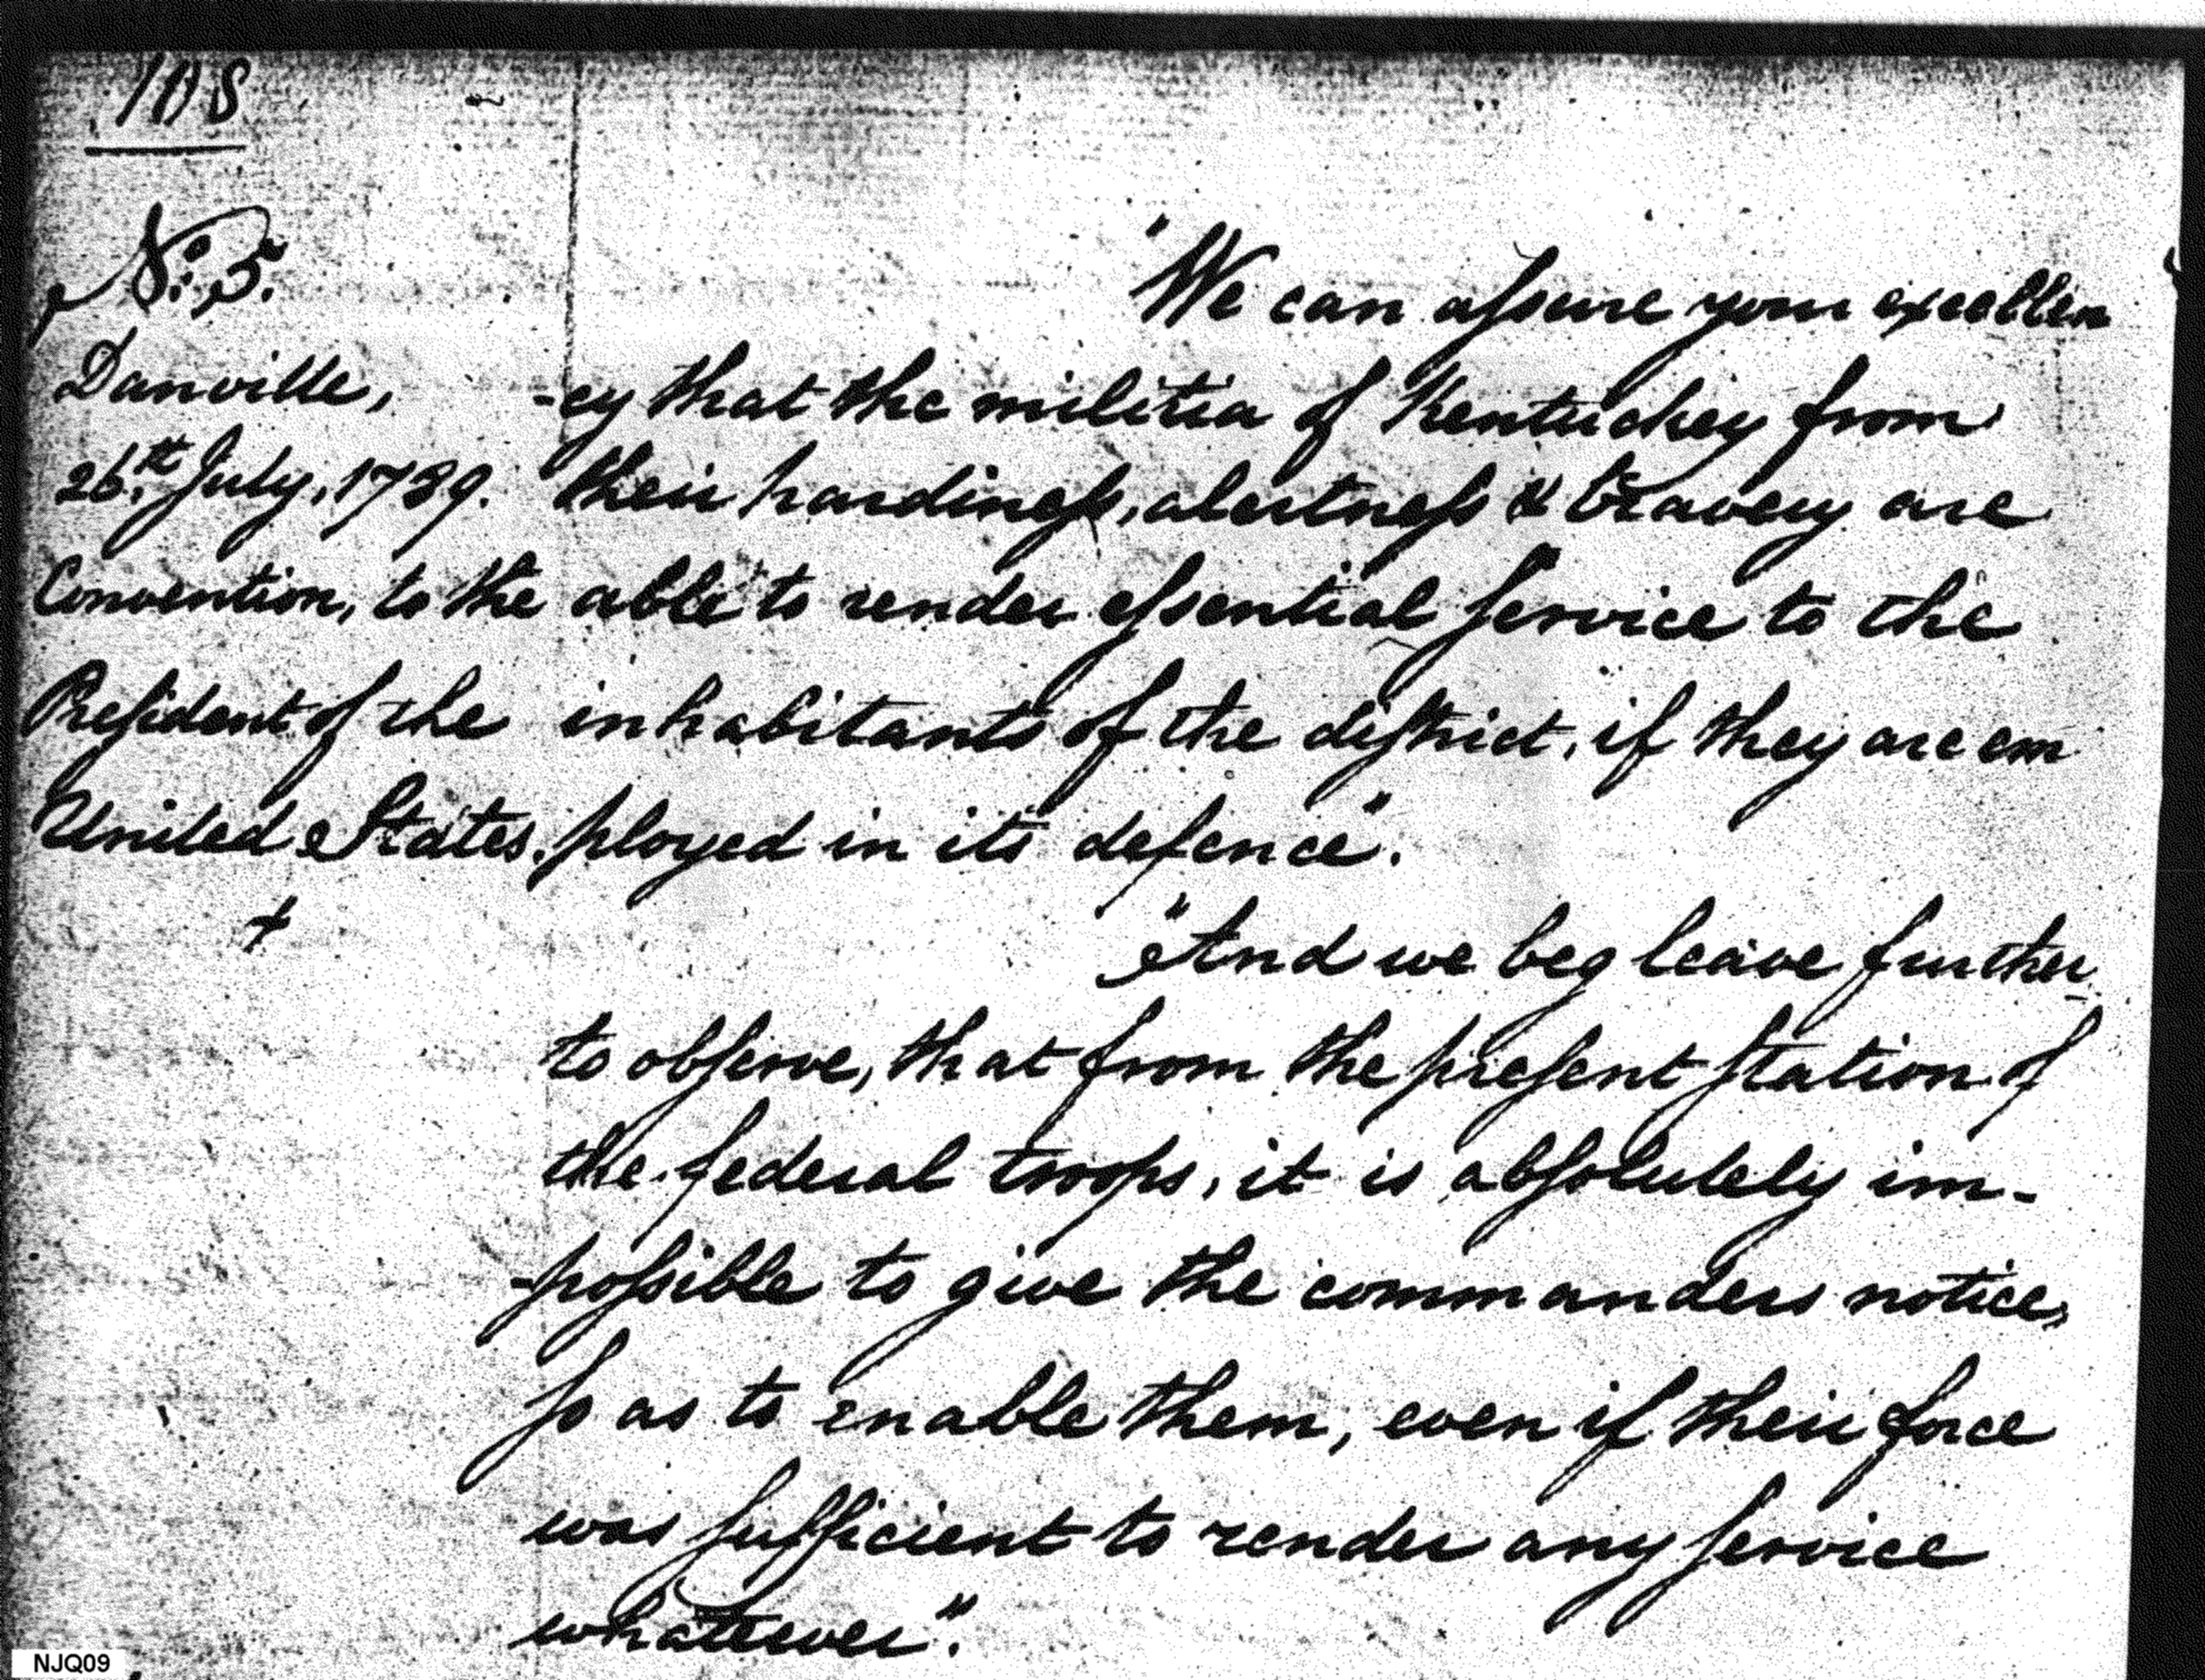 108
No. 5.
Danville,
26th July, 1789.
Convention, to the
President of the
United States.
"We can assure your excellen
-cy that the militia of Kentuckey from
their hardiness, alertness & bravery are
able to render essential service to the
inhabitants of the district, if they are em
ployed in its defence".
"And we beg leave further
to observe, that from the present station of
the federal troops, it is absolutely im-
-possible to give the commanders notice,
so as to enable them, even if their force
was sufficient to render any service
whatever".
NJQ09